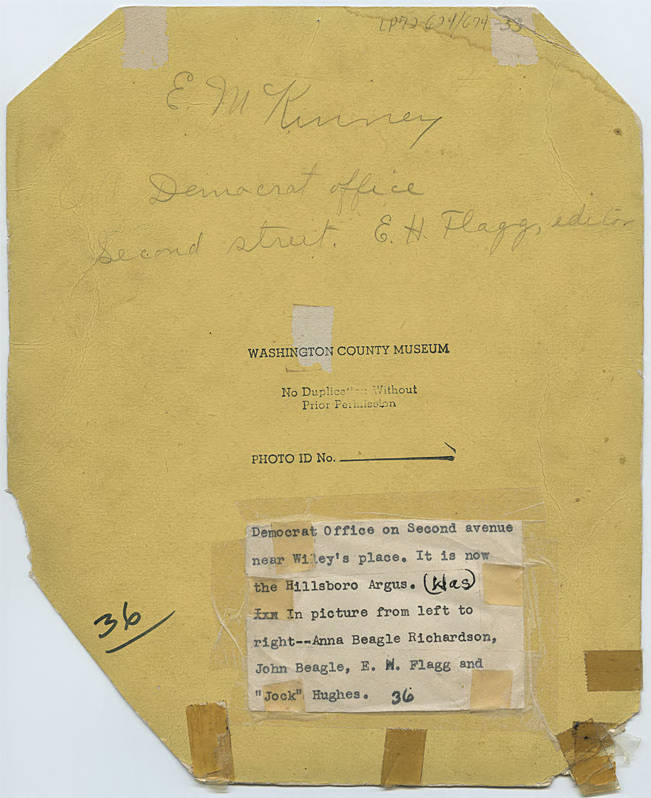 LP72-674/674-38
E. McKinney
Democrat office
Second street. E. H. Flagg, editor
WASHINGTON COUNTY MUSEUM
No Duplication Without
Prior Permission
PHOTO ID No.
Democrat Office on Second avenue
near Wiley's place. It is now
the Hillsboro Argus. (Was)
In picture from left to
right--Anna Beagle Richardson,
John Beagle, E. H. Flagg and
"Jock" Hughes. 36
36